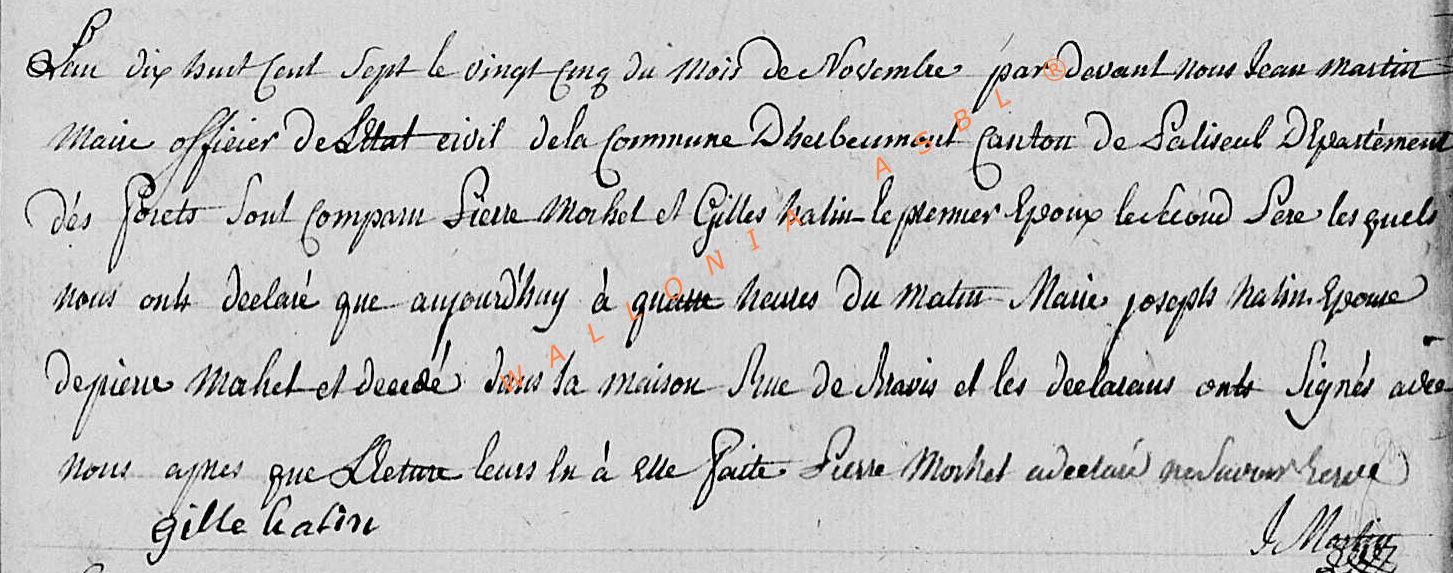 Lan dix huit Cent Sept le vingt Cinq du Mois de Novembre par devant nous Jean Martin
Maire officier de Létat civil dela Commune Dherbeumont Canton de Paliseul Département
dés Forets Sont Comparu Pierre Mohet et Gilles hatin le premier Epoux le Second Pere les quels
nous onts declaré que aujourd'huy à quattre heures du matin Marie joseph hatin Epouse
depierre Mohet et decedé dans Sa maison Rue de et les declarans onts Signés avec
nous apres que Lleture leurs En à Ette Faite Pierre Mohet adeclaré ne Savoir
gille hatin
J Martin
WALLONIA ASBL ®